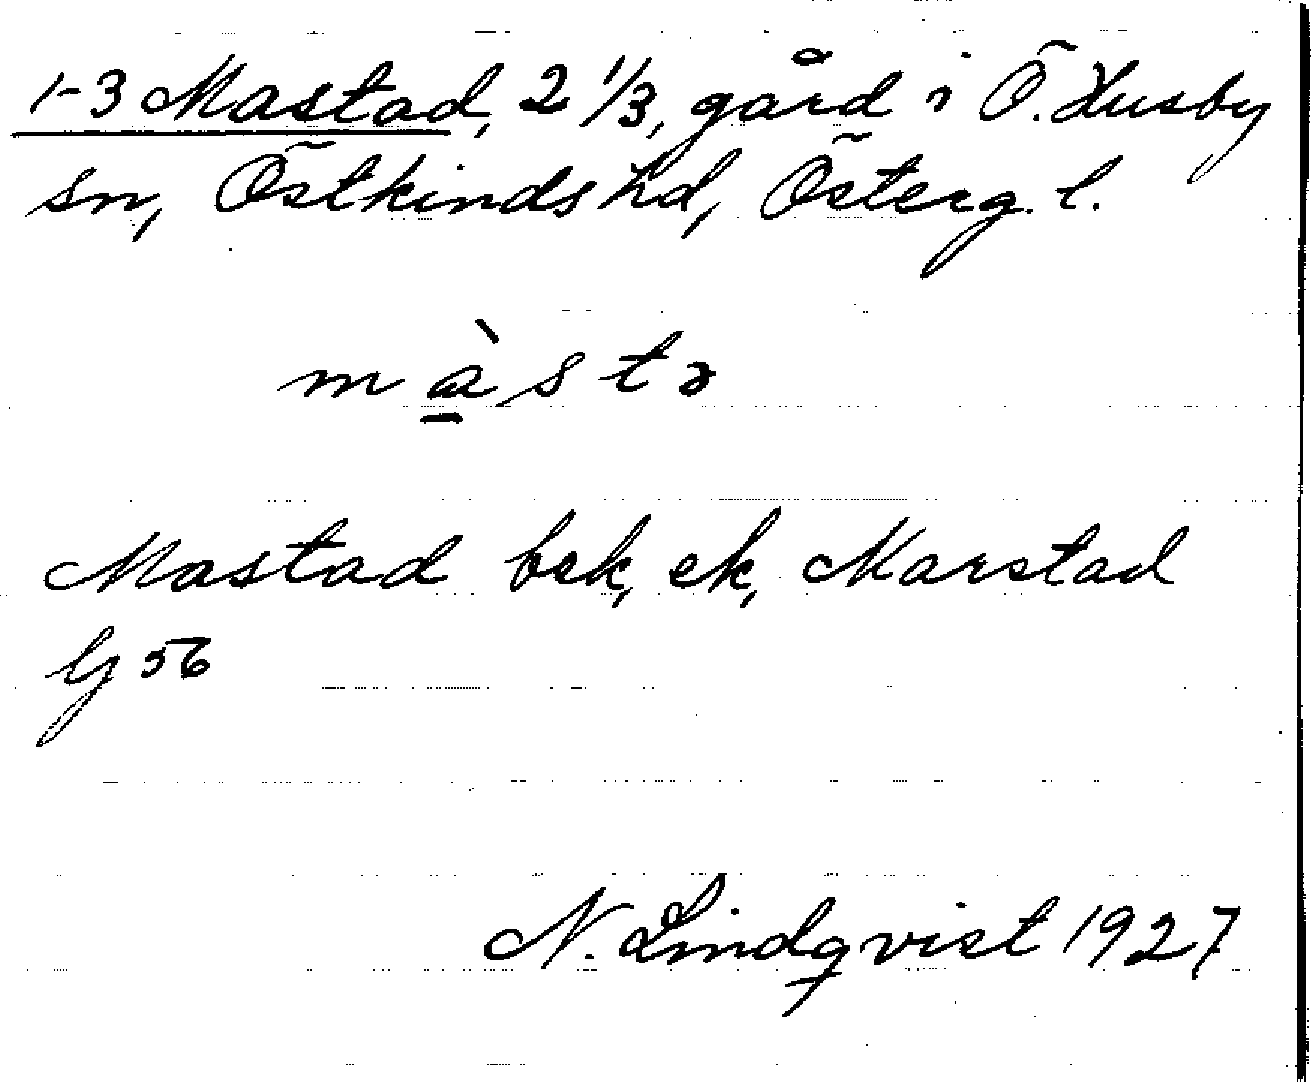 1-3 Mastad, 2 1/3, gård i Ö. Husby
sn, Östkinds hd, Österg. l.
mà̲stə
Mastad bek, ek, Marstad
G 56
N. Lindqvist 1927